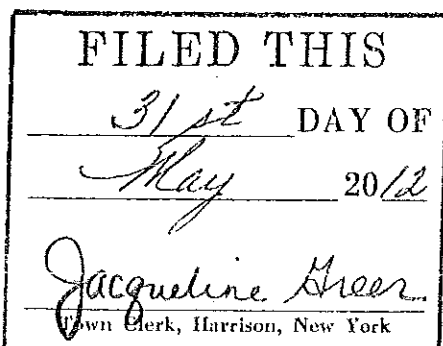 FILED THIS
31st DAY OF
May 2012
Jacqueline Greer
Town Clerk, Harrison, New York